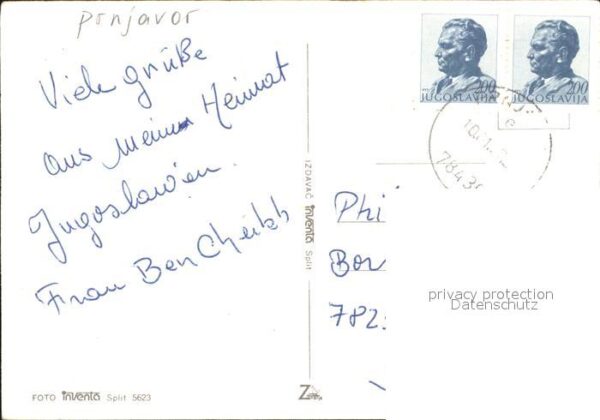 prnjavor
Viele grüße
aus meiner Heimat
Jugoslawien.
Frau Ben Cheikh
FOTO inventa Split 5623
IZDAVAČ inventa Split
200
JUGOSLAVIJA
200
JUGOSLAVIJA
7843
Phi
Bor
782
privacy protection
Datenschutz